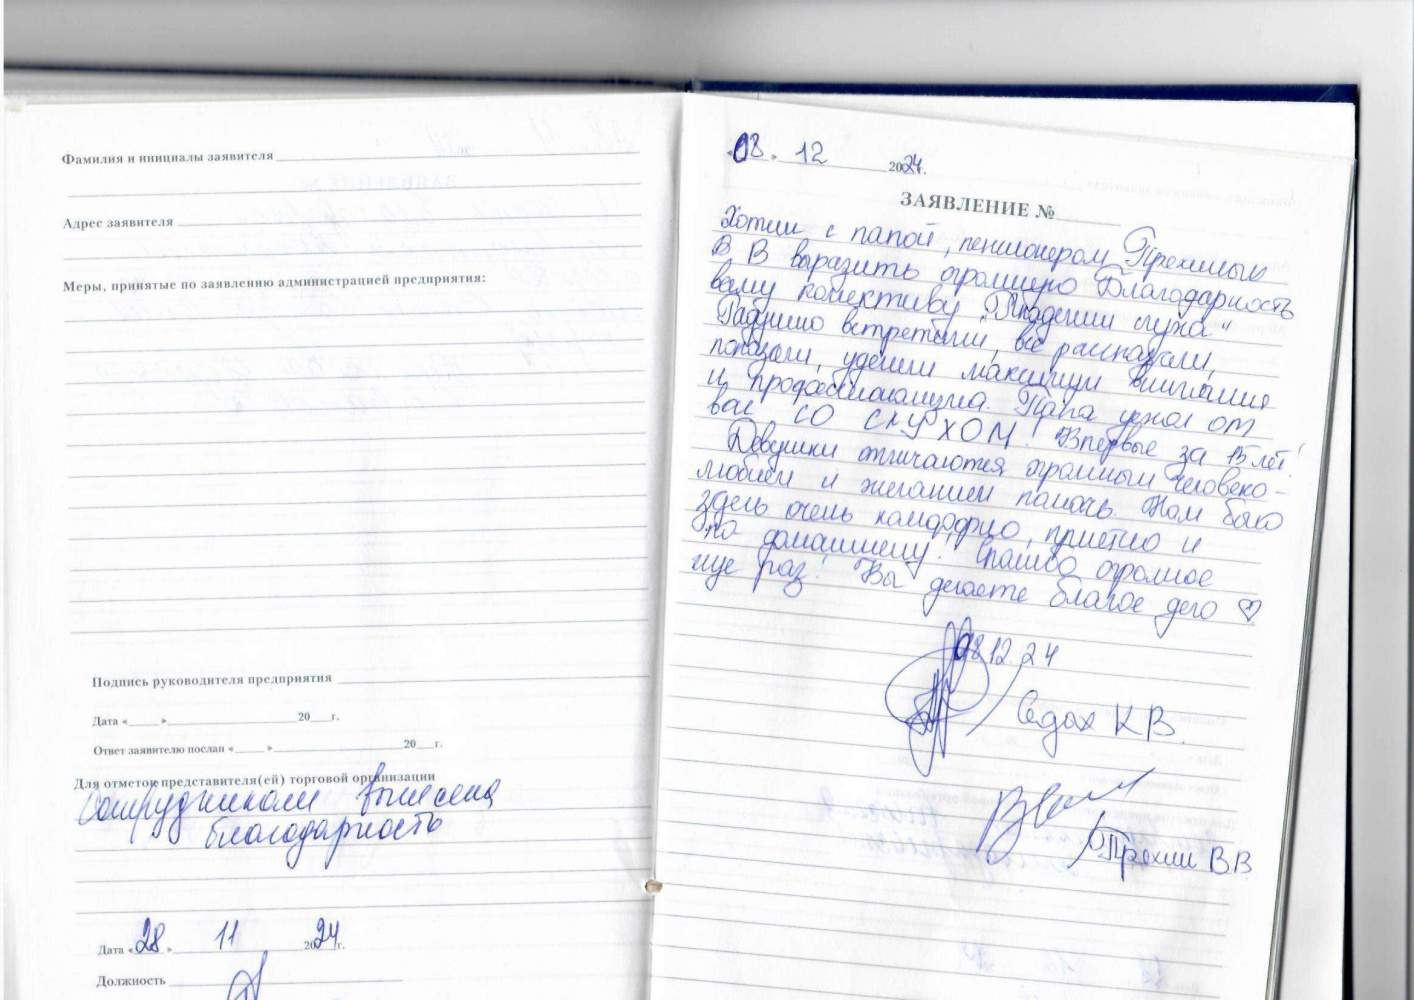 Фамилия и инициалы заявителя
Адрес заявителя
Меры, принятые по заявлению администрацией предприятия:
Подпись руководителя предприятия
Дата «   »   20   г.
Ответ заявителю послан «   »   20   г.
Для отметок представителя(ей) торговой организации
Сотрудникам вынесена
благодарность
Дата «28» 11 2024г.
Должность
«08» 12 2024г.
ЗАЯВЛЕНИЕ №
Хотим с папой, пенсионером Трехиным
В В выразить огромную Благодарность
вашему колективу „Академии слуха“
Радушно встретили, все рассказали,
показали, уделили максимум внимания
и профессионализма. Папа ушел от
вас СО СЛУХОМ! Впервые за 15 лет!
Девушки отличаются огромным человеко-
любием и желанием помочь. Нам было
здесь очень комфорно, приятно и
по домашнему! Спасибо огромное
еще раз! Вы делаете благое дело ♡
08.12.24
Седах К В.
Трехин В.В.